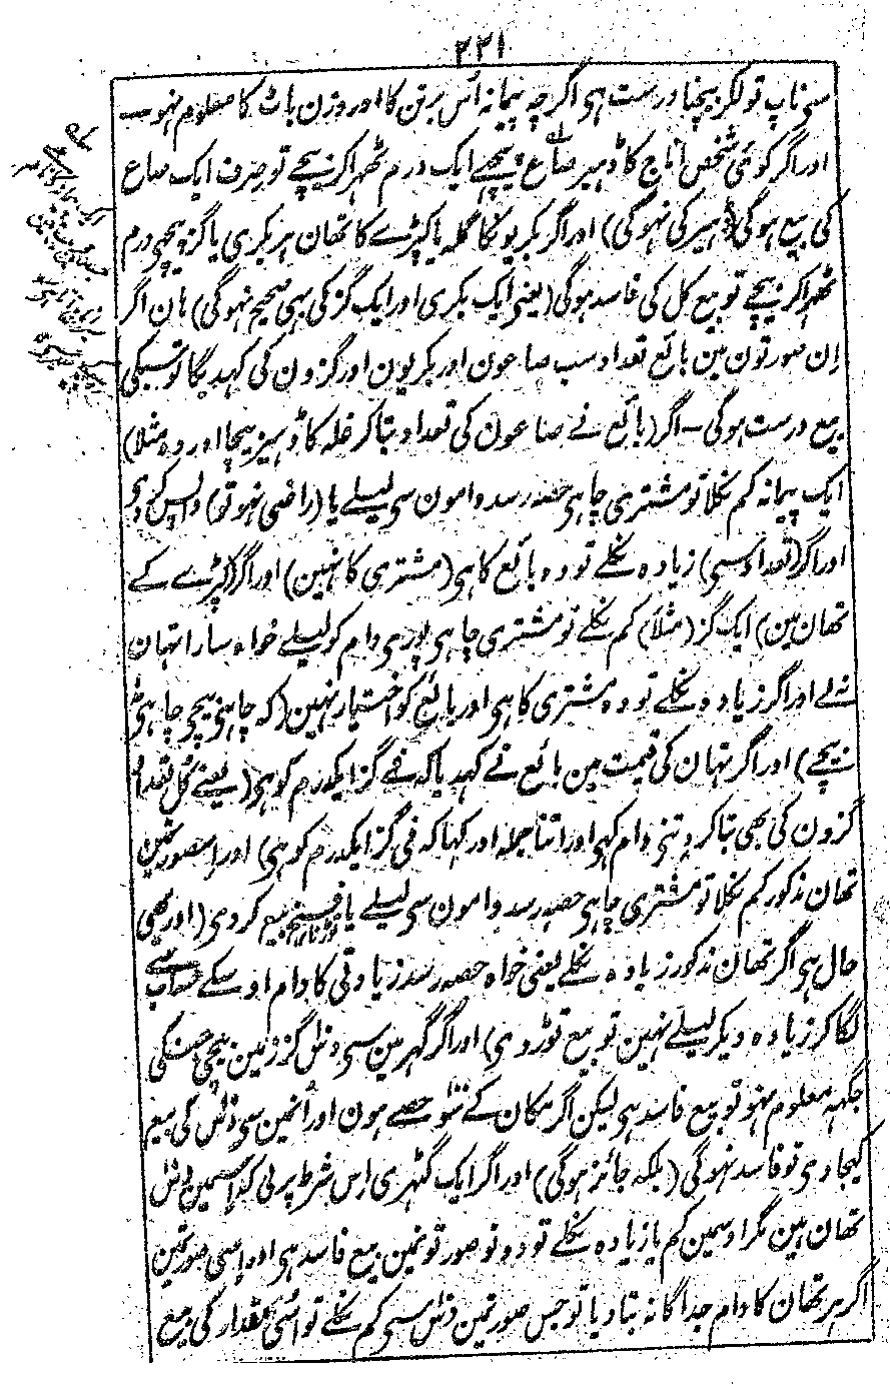 ۲۲۱
سی ناپ تولکر بیچنا درست ہی اگرچہ پیمانہ اُس برتن کا اور وزن باٹ کا معلوم نہو۔
اور اگر کوئی شخص اناج کا ڈہیر صاع پیچھے ایک درم ٹھہرا کر بیچے تو صرف ایک صاع
کی بیع ہوگی (ڈہیر کی نہوگی) اور اگر بکریونکا گلہ یا کپڑے کا تھان ہر بکری یا گز پیچھی درم
ٹھہرا کر بیچے تو بیع کل کی فاسد ہوگی (یعنی ایک بکری اور ایک گز کی بہی صحیح نہوگی) ہان اگر
اِن صورتون مین بائع تعداد سب صاعون اور بکریون اور گزون کی کہدیگا تو سبکی
بیع درست ہوگی۔ اگر (بائع نے صاعون کی تعداد بتا کر غلہ کا ڈہیر بیچا اور وہ مثلاً)
ایک پیمانہ کم نکلا تو مشتری چاہی حصہ رسد دامون سی لیلے یا (راضی نہو تو) واپس کر دی
اور اگر (تعداد سی) زیادہ نکلے تو وہ بائع کا ہی (مشتری کا نہین) اور اگر (کپڑے کے
تھان مین) ایک گز (مثلاً) کم نکلے تو مشتری چاہی پوری دام کو لیلے خواہ سارا تہان
نہ لے اور اگر زیادہ نکلے تو وہ مشتری کا ہی اور بائع کو اختیار نہین (کہ چاہی بیچی چاہی
نہ بیچے) اور اگر تہان کی قیمت مین بائع نے کہدیا کہ فے گز ایکدرم کو ہی (یعنے کل تعداد
گزون کی بھی بتا کر اتنی دام کہی اور اتنا جملہ اور کہا کہ فی گز ایکدرم کو ہی) اور اسصورتمین
تھان مذکور کم نکلا تو مشتری چاہی حصہ رسد دامون سی لیلے یا فسخ بیع کر دی (اور یہی
حال ہی اگر تھان مذکور زیادہ نکلے یعنی خواہ حصہ رسد زیادتی کا دام اوسکے حساب سے
لگا کر زیادہ دیکر لیلے نہین تو بیع توڑ دی) اور اگر گہر مین سی دس گز زمین بیچی جسکی
جگہہ معلوم نہو تو بیع فاسد ہی لیکن اگر مکان کے سو حصے ہون اور اُنمین سی دس کی بیع
کیجاوی تو فاسد نہوگی (بلکہ جائز ہوگی) اور اگر ایک گٹھری اِس شرط پر لی کہ اسمین دس
تھان ہین مگر اوسمین کم یا زیادہ نکلے تو دونو صورتونمین بیع فاسد ہی اور اِسی صورتمین
اگر ہر تھان کا دام جداگانہ بتا دیا تو جس صورتمین دس سی کم نکلے تو اُسی مقدار کی بیع